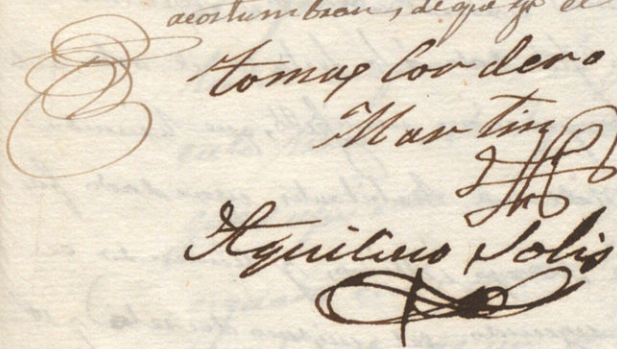 acostumbran, de que yo el
tomas Cordero
Martin
Aquilino Solis